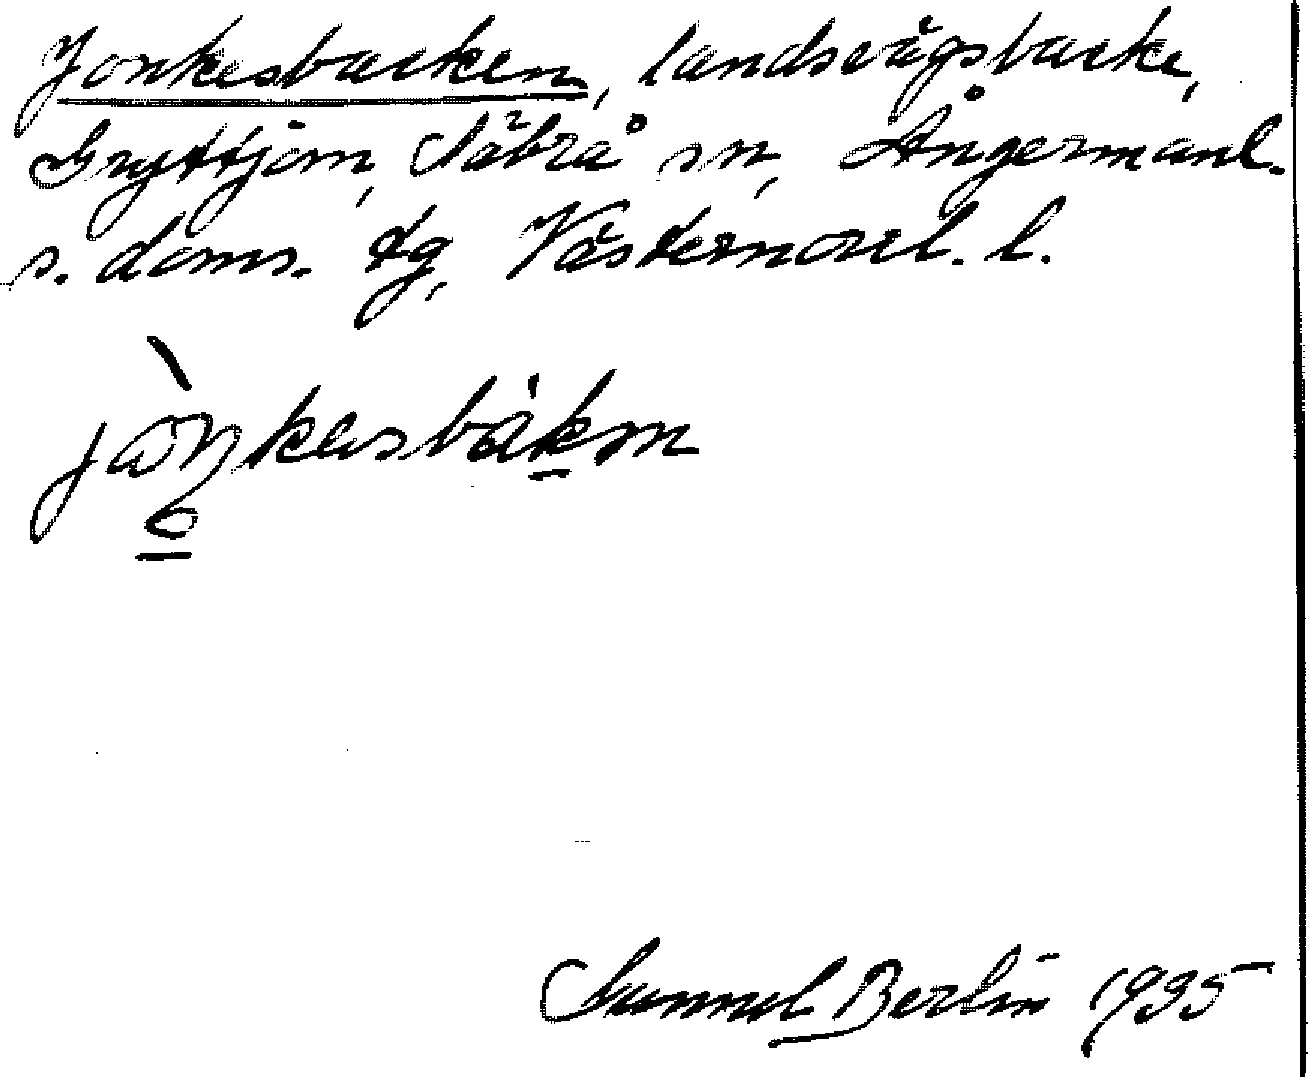 Jonkesbacken, landsvägsbacke,
Gryttjom, Säbrå sn, Ångermanl.
s. doms. tg, Västernorrl. l.
Samuel Berlin 1935